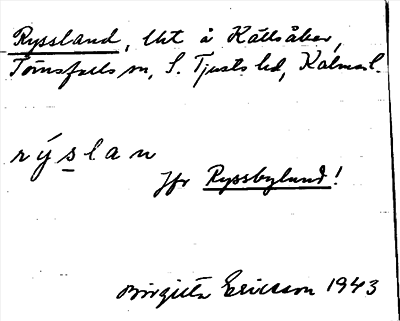 Ryssland, lht å Kättsåker,
Törnsfalls sn, S. Tjusts hd, Kalmar l.
rýslan
Jfr Ryssbylund!
Birgitta Ericsson 1943